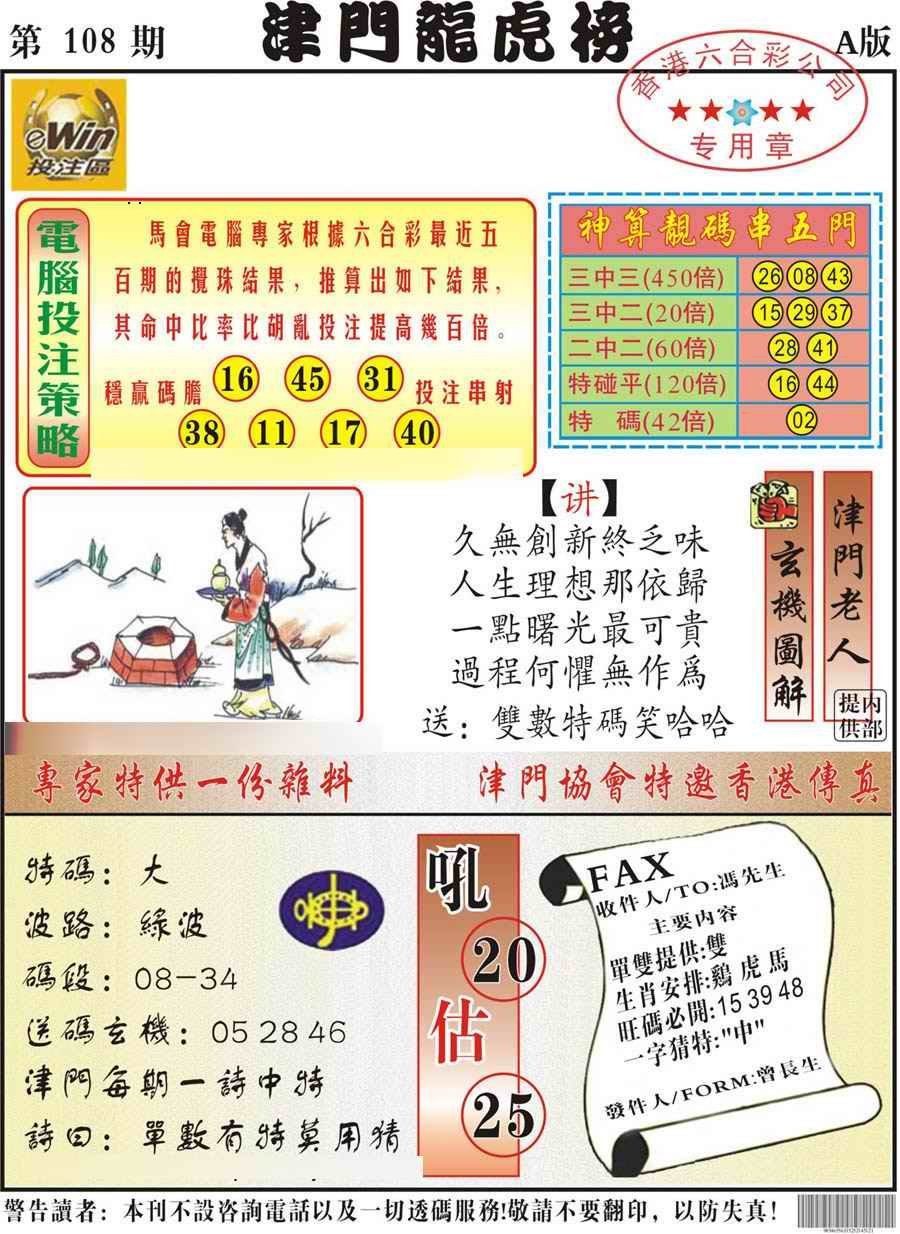 第 108 期
津門龍虎榜
A版
香港六合彩公司
专用章
eWin
投注區
電腦投注策略
馬會電腦專家根據六合彩最近五
百期的攪珠結果，推算出如下結果，
其命中比率比胡亂投注提高幾百倍。
穩贏碼膽 16 45 31 投注串射
38 11 17 40
神算靚碼串五門
三中三(450倍) 26 08 43
三中二(20倍) 15 29 37
二中二(60倍) 28 41
特碰平(120倍) 16 44
特 碼(42倍) 02
【讲】
久無創新終乏味
人生理想那依歸
一點曙光最可貴
過程何懼無作爲
送：雙數特碼笑哈哈
玄機圖解
津門老人
提内
供部
專家特供一份雜料
津門協會特邀香港傳真
特碼：大
波路：綠波
碼段：08－34
送碼玄機：05 28 46
津門每期一詩中特
詩曰：單數有特莫用猜
吼
20
估
25
FAX
收件人/TO:馮先生
主要内容
單雙提供:雙
生肖安排:鷄 虎 馬
旺碼必開:15 39 48
一字猜特:"巾"
發件人/FORM:曾長生
警告讀者：本刊不設咨詢電話以及一切透碼服務!敬請不要翻印，以防失真！